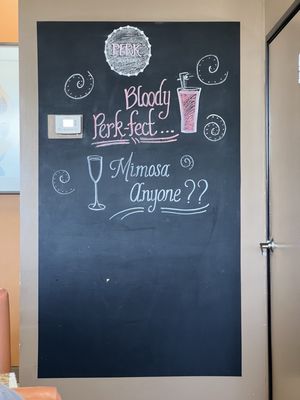 PERK
Bloody
Perk-fect...
Mimosa
Anyone??